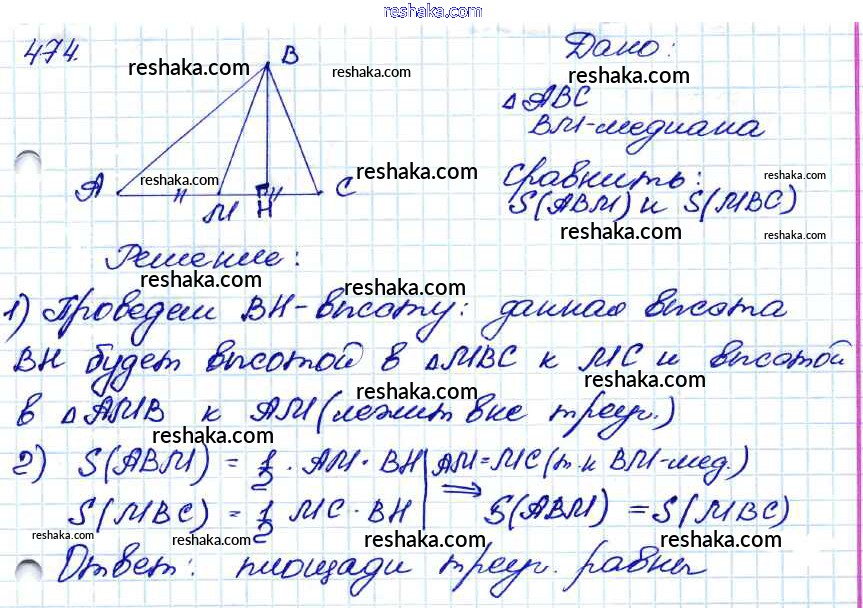 reshaka.com
474.
reshaka.com
B
reshaka.com
Дано:
reshaka.com
△ABC
BM-медиана
A
reshaka.com
M
H
C
reshaka.com
Сравнить:
reshaka.com
S(ABM) и S(MBC)
reshaka.com
reshaka.com
Решение:
reshaka.com
reshaka.com
1) Проведем BH-высоту: данная высота
BH будет высотой в △MBC к MC и высотой
reshaka.com
reshaka.com
в △AMB к AM (лежит вне треуг.)
reshaka.com
reshaka.com
2) S(ABM) = 1/2 · AM · BH | AM = MC (т.к BM-мед.)
S(MBC) = 1/2 MC · BH | ⇒ S(ABM) = S(MBC)
reshaka.com
reshaka.com
reshaka.com
reshaka.com
Ответ: площади треуг. равны
reshaka.com